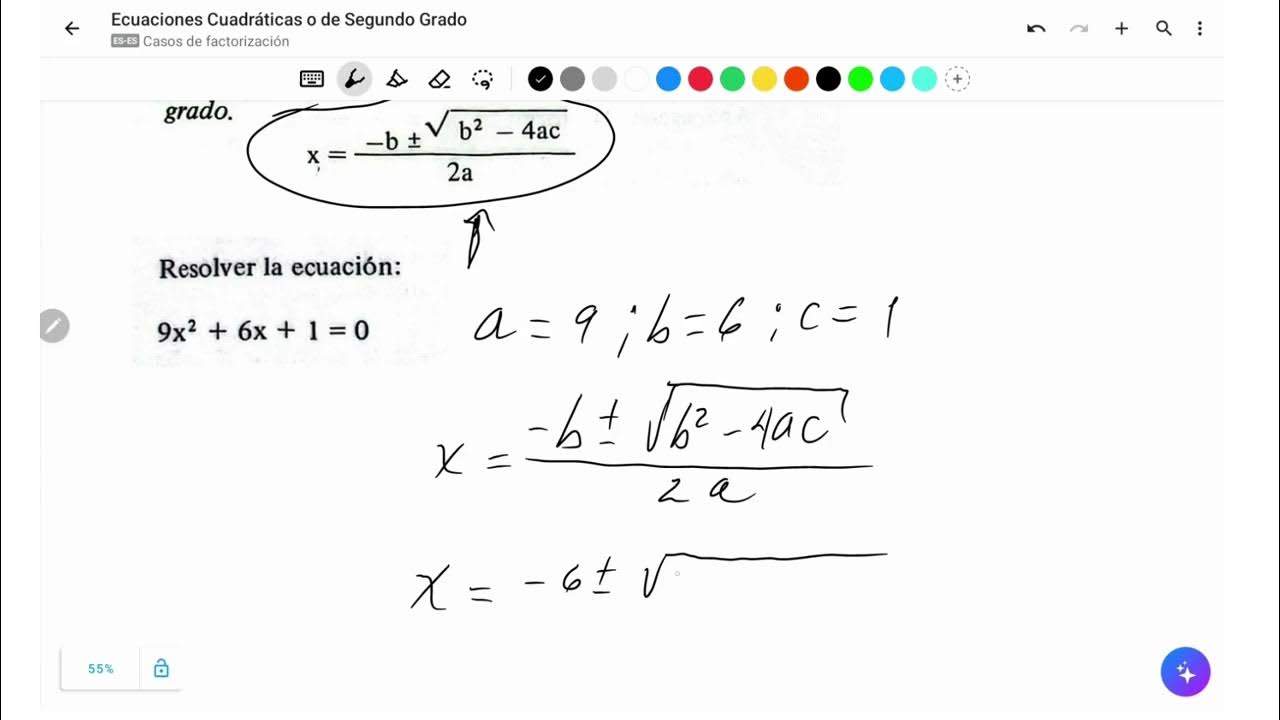 Ecuaciones Cuadráticas o de Segundo Grado
ES-ES Casos de factorización
grado.
x = (-b ± √(b² - 4ac)) / 2a
Resolver la ecuación:
9x² + 6x + 1 = 0
a = 9 ; b = 6 ; c = 1
x = (-b ± √(b² - 4ac)) / 2a
x = -6 ± √
55%